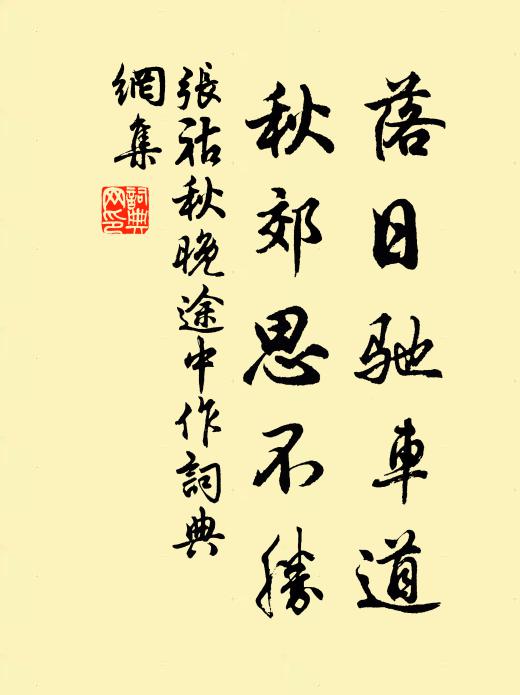 落日馳車道
秋郊思不勝
張祜秋晚途中作詞典
網集
詞典網印